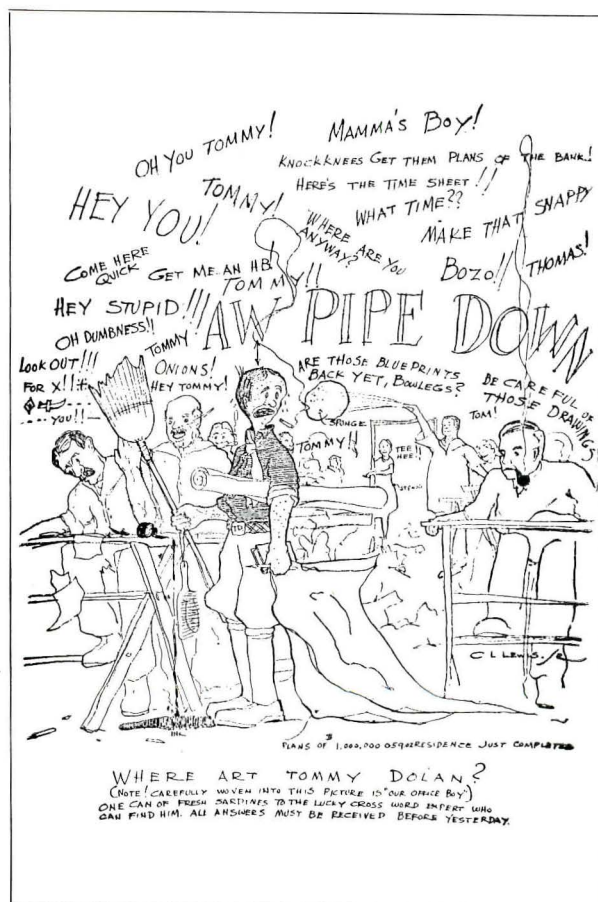 OH YOU TOMMY!
MAMMA'S BOY!
KNOCKKNEES GET THEM PLANS OF THE BANK!
HERE'S THE TIME SHEET!!
HEY YOU!
TOMMY!
WHAT TIME??
MAKE THAT SNAPPY
WHERE ARE YOU
ANYWAY?
COME HERE
QUICK
GET ME AN HB
TOMMY!!
BOZO!!
THOMAS!
HEY STUPID!!!
AW PIPE DOWN
OH DUMBNESS!!
TOMMY
LOOK OUT!!!
FOR X!!
YOU!!
ONIONS!
HEY TOMMY!
ARE THOSE BLUEPRINTS
BACK YET, BOWLEGS?
BE CAREFUL OF
THOSE DRAWINGS
TOM!
SPONGE
TOMMY!!
TEE
HEE!!
TD
INK
C L LEWIS. Jr
PLANS OF $1,000,000 RESIDENCE JUST COMPLETED
WHERE ART TOMMY DOLAN?
(NOTE! CAREFULLY WOVEN INTO THIS PICTURE IS "OUR OFFICE BOY")
ONE CAN OF FRESH SARDINES TO THE LUCKY CROSS WORD EXPERT WHO
CAN FIND HIM. ALL ANSWERS MUST BE RECEIVED BEFORE YESTERDAY.